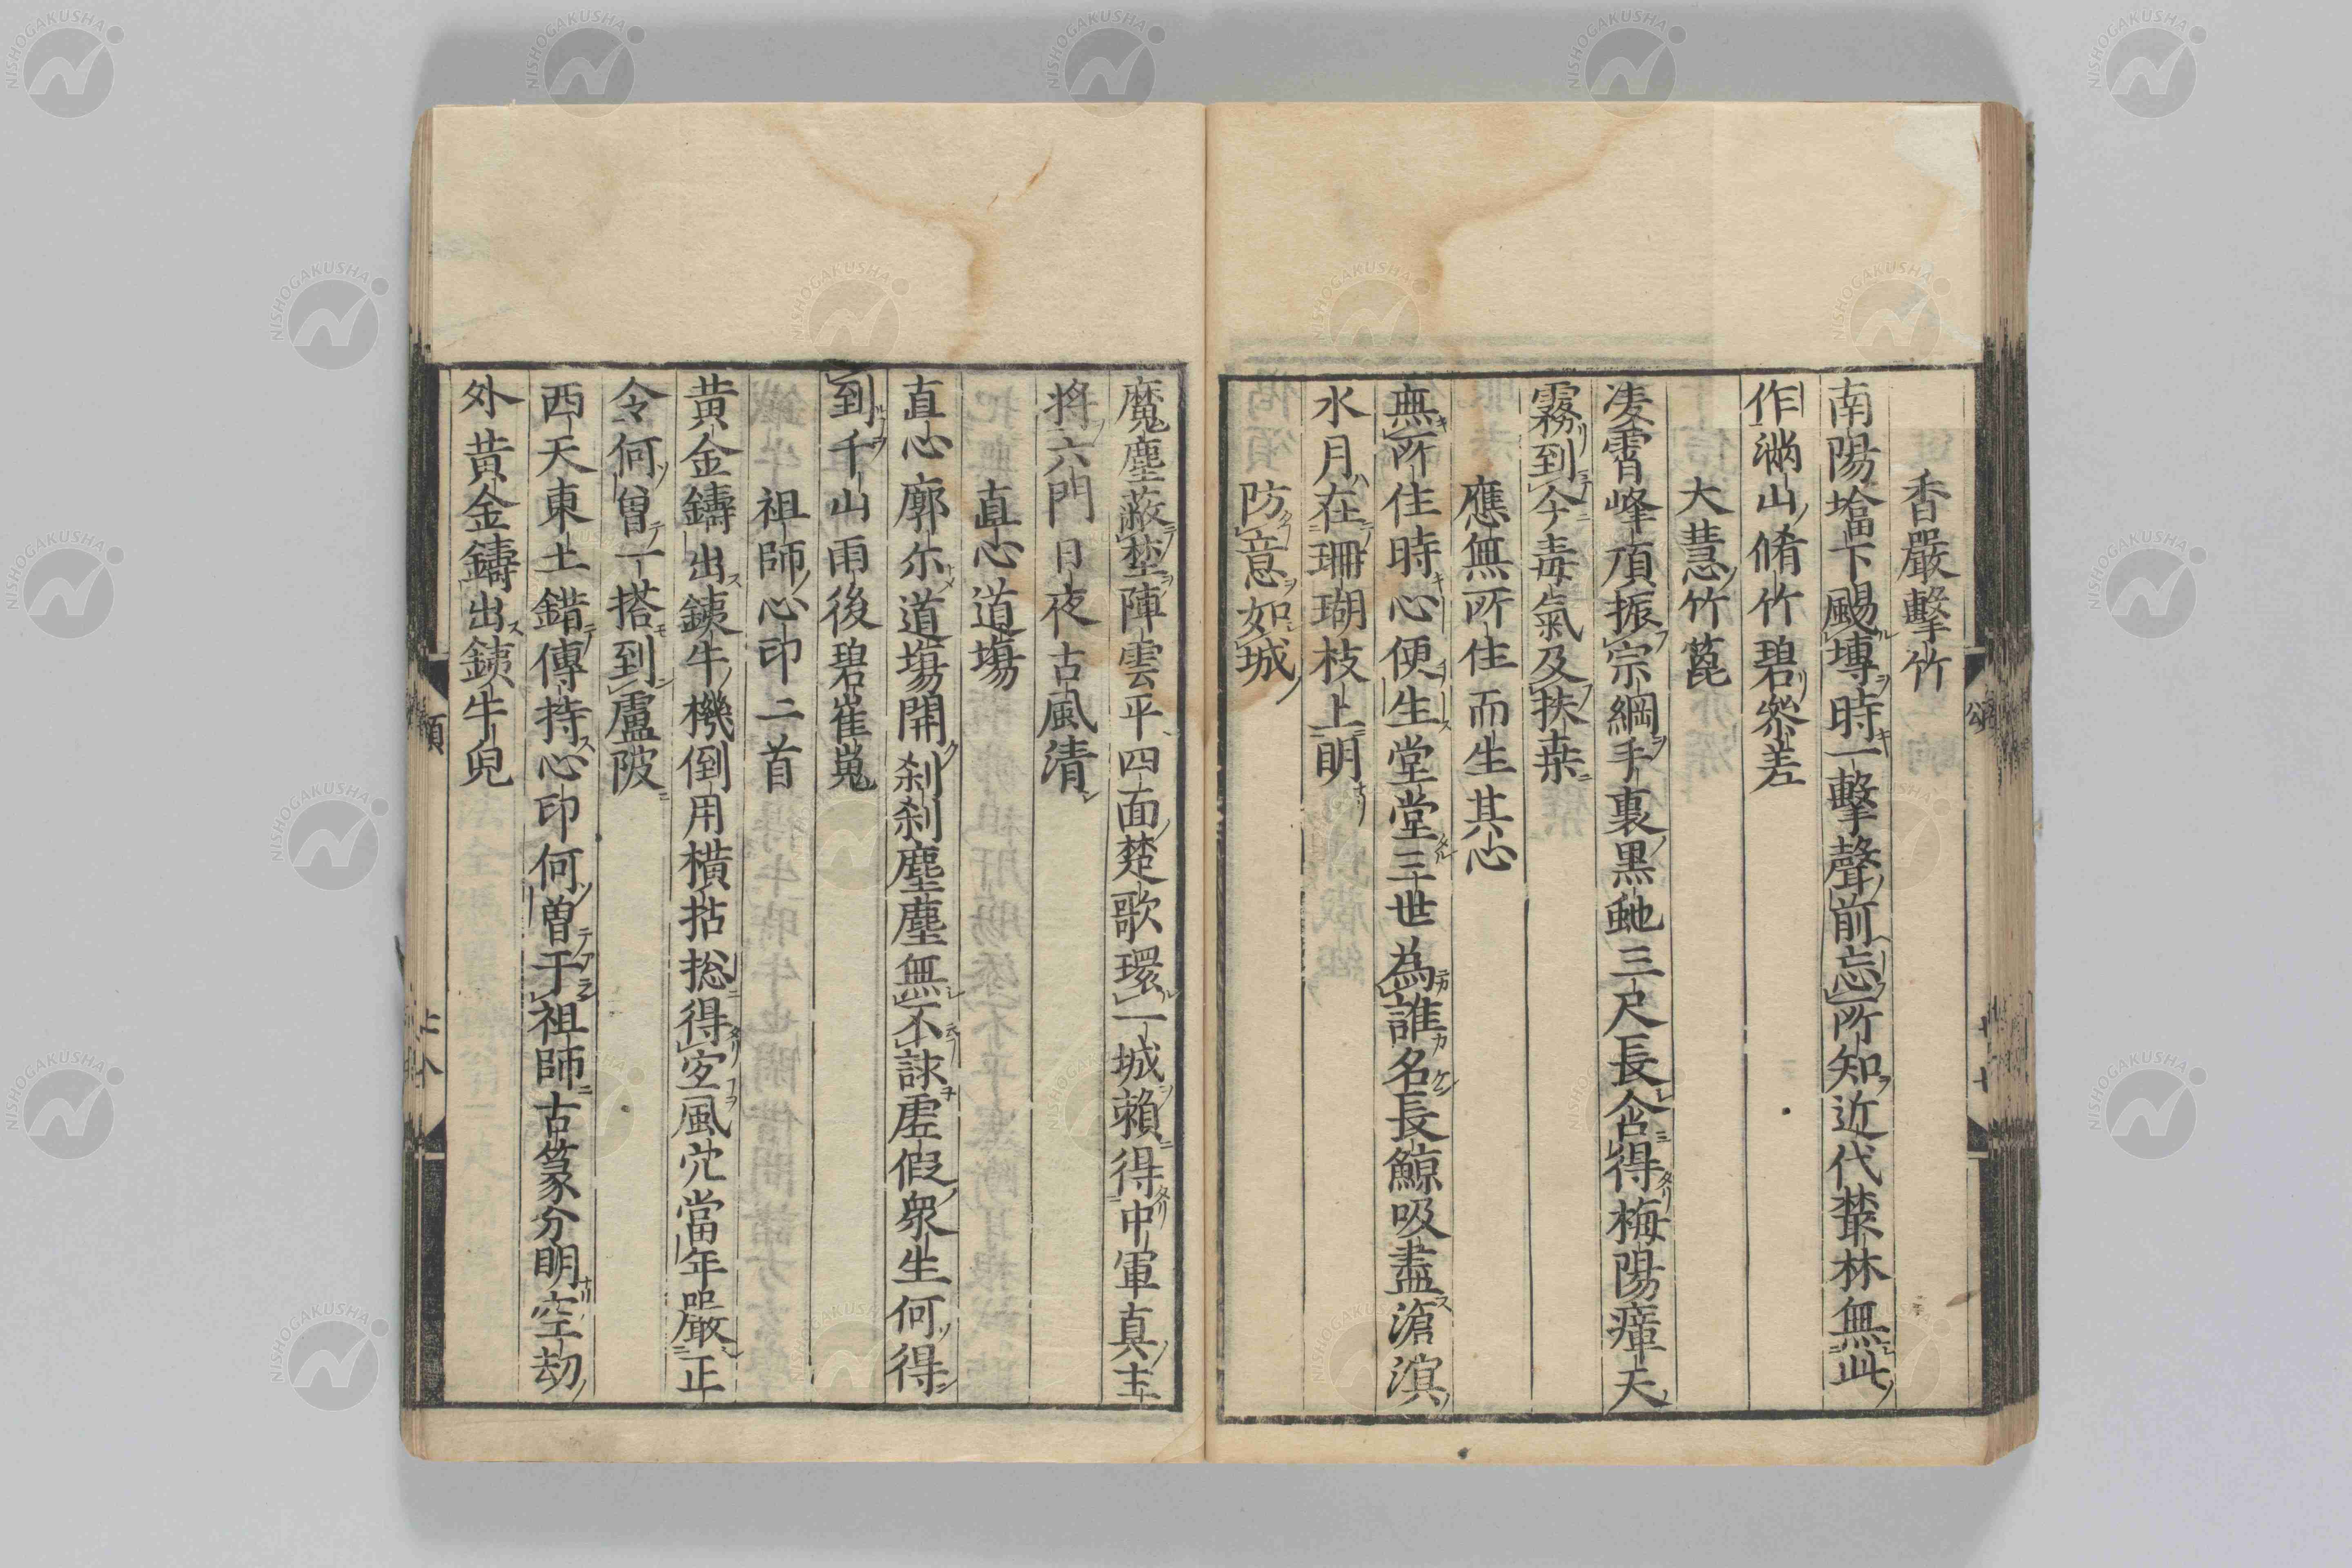 香嚴擊竹
南陽墖下颺塼時一擊聲前忘所知近代叢林無此
作溈山脩竹碧參差
大慧竹篦
凌霄峰頂振宗綱手裏黑虵三尺長含得梅陽瘴天
霧到今毒氣及扶桒
應無所住而生其心
無所住時心便生堂堂三世為誰名長鯨吸盡滄溟
水月在珊瑚枝上明
防意如城
魔塵蔽埜陣雲平四面楚歌環一城賴得中軍真主
將六門日夜古風清
直心道場
直心廓尓道場開刹刹塵塵無不諘虗假衆生何得
到千山雨後碧崔嵬
祖師心印二首
黄金鑄出鉄牛機倒用橫拈捴得冝風穴當年嚴正
令何曽一搭到盧陂
西天東土錯傳持心印何曽于祖師古篆分明空劫
外黄金鑄出鉄牛兒